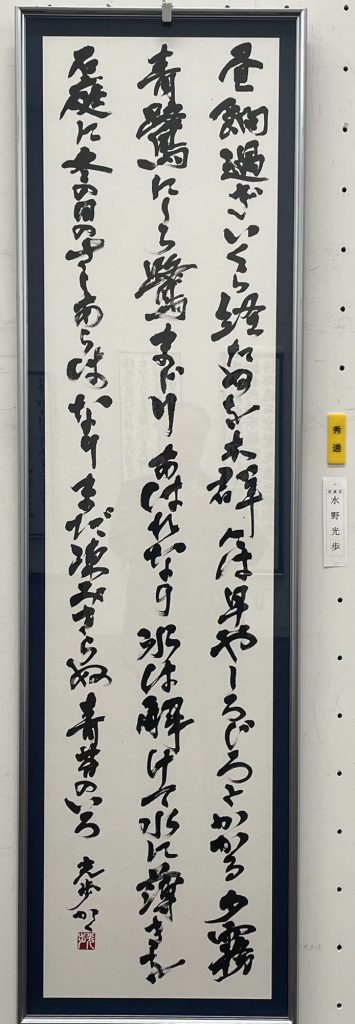 昼餉過ぎいくら経たぬを木群には早やしろじろとかかる夕霧
青鷺にしら鷺まじりあはれなり氷は解けて水に薄きを
石庭に冬の日のさしあらはなりまだ凍みきらぬ青苔のいろ 光歩かく
秀逸
水野光歩